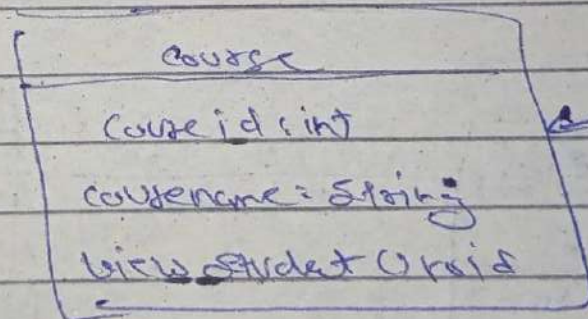 course
course id : int
coursename : String
view student () void